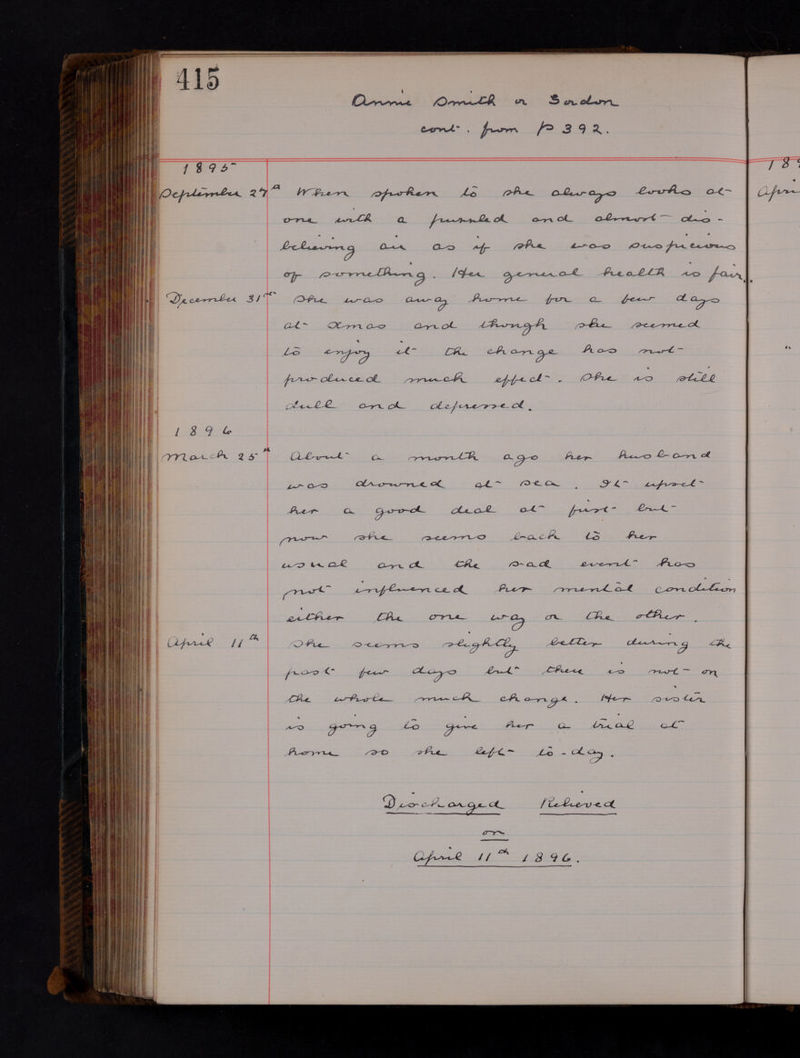 415
Annie Smith or Gordon
cont. from P 392.
1895
September 27th When spoken to she always looks at
one with a puzzled and almost dis-
believing air as if she was suspicious
of something. Her general health is fair.
December 31st She was away home for a few days
at Xmas and though she seemed
to enjoy it the change has not
produced much effect. She is still
dull and depressed.
1896
March 25th About a month ago her husband
was drowned at sea. It upset
her a good deal at first but
now she seems back to her
usual and the sad event has
not influenced her mental condition
either the one way or the other.
April 11th She seems slightly better during the
past few days but there is not on
the whole much change. Her sister
is going to give her a trial at
home so she left to-day.
Discharged Relieved
on
April 11th 1896.
18